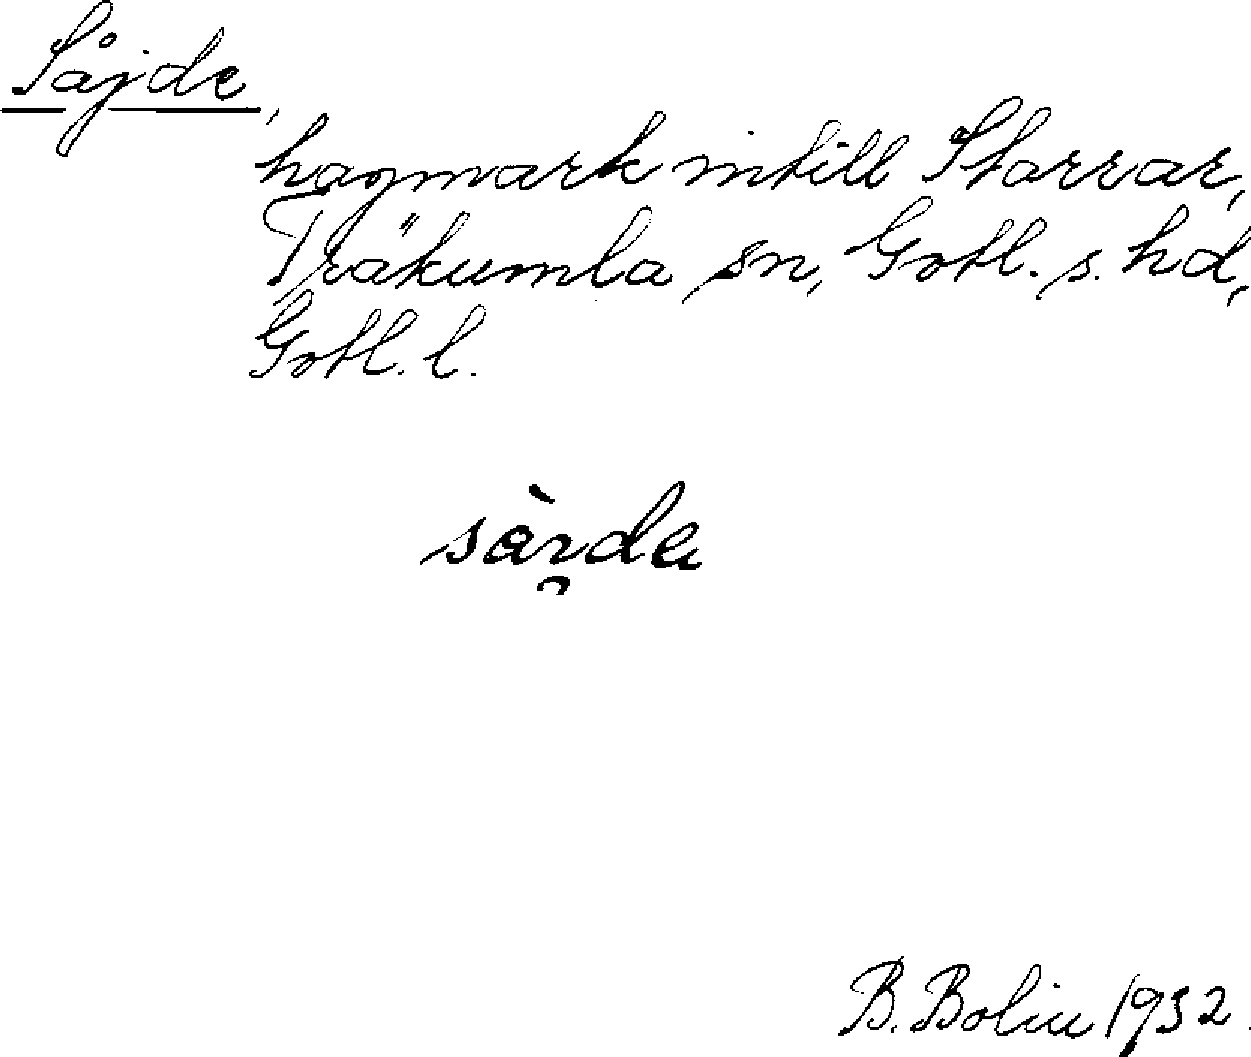 Såjde,
hagmark intill Starrar,
Träkumla sn, Gotl. s. hd,
Gotl. l.
B. Bolin 1932.